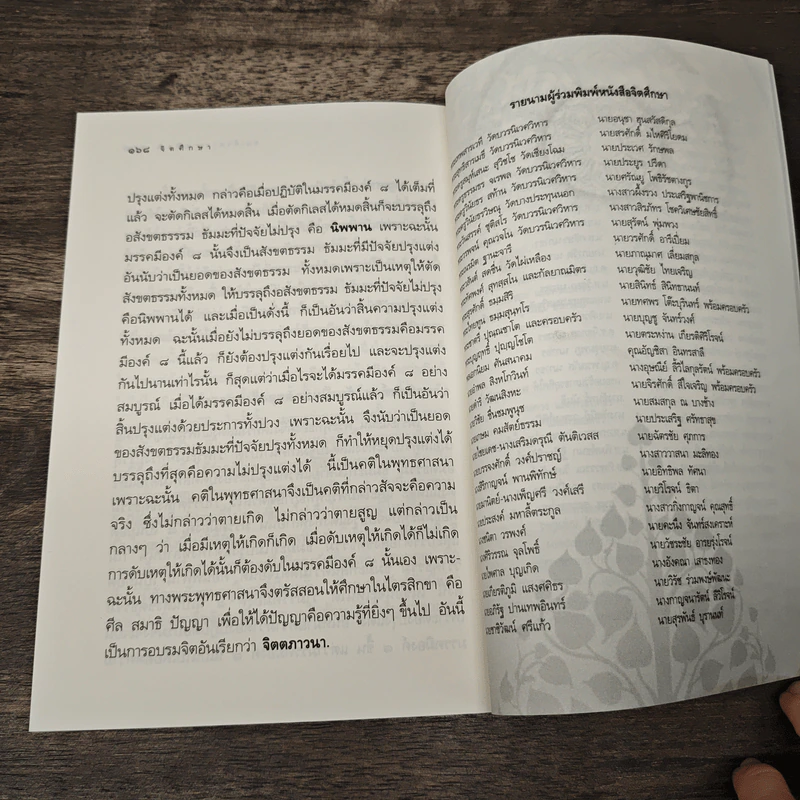 ๑๖๘ จิตศึกษา
ปรุงแต่งทั้งหมด กล่าวคือเมื่อปฏิบัติในมรรคมีองค์ ๘ ได้เต็มที่
แล้ว จะตัดกิเลสได้หมดสิ้น เมื่อตัดกิเลสได้หมดสิ้นก็จะบรรลุถึง
อสังขตธรรม ธัมมะที่ปัจจัยไม่ปรุง คือ นิพพาน เพราะฉะนั้น
มรรคมีองค์ ๘ นั้นจึงเป็นสังขตธรรม ธัมมะที่มีปัจจัยปรุงแต่ง
อันนับว่าเป็นยอดของสังขตธรรม ทั้งหมดเพราะเป็นเหตุให้ตัด
สังขตธรรมทั้งหมด ให้บรรลุถึงอสังขตธรรม ธัมมะที่ปัจจัยไม่ปรุง
คือนิพพานได้ และเมื่อเป็นดั่งนี้ ก็เป็นอันว่าสิ้นความปรุงแต่ง
ทั้งหมด ฉะนั้นเมื่อยังไม่บรรลุถึงยอดของสังขตธรรมคือมรรค
มีองค์ ๘ นี้แล้ว ก็ยังต้องปรุงแต่งกันเรื่อยไป และจะปรุงแต่ง
กันไปนานเท่าไรนั้น ก็สุดแต่ว่าเมื่อไรจะได้มรรคมีองค์ ๘ อย่าง
สมบูรณ์ เมื่อได้มรรคมีองค์ ๘ อย่างสมบูรณ์แล้ว ก็เป็นอันว่า
สิ้นปรุงแต่งด้วยประการทั้งปวง เพราะฉะนั้น จึงนับว่าเป็นยอด
ของสังขตธรรมธัมมะที่ปัจจัยปรุงทั้งหมด ก็ทำให้หยุดปรุงแต่งได้
บรรลุถึงที่สุดคือความไม่ปรุงแต่งได้ นี้เป็นคติในพุทธศาสนา
เพราะฉะนั้น คติในพุทธศาสนาจึงเป็นคติที่กล่าวสัจจะคือความ
จริง ซึ่งไม่กล่าวว่าตายเกิด ไม่กล่าวว่าตายสูญ แต่กล่าวเป็น
กลางๆ ว่า เมื่อมีเหตุให้เกิดก็เกิด เมื่อดับเหตุให้เกิดได้ก็ไม่เกิด
การดับเหตุให้เกิดได้นั้นก็ต้องดับในมรรคมีองค์ ๘ นั้นเอง เพราะ-
ฉะนั้น ทางพระพุทธศาสนาจึงตรัสสอนให้ศึกษาในไตรสิกขา คือ
ศีล สมาธิ ปัญญา เพื่อให้ได้ปัญญาคือความรู้ที่ยิ่งๆ ขึ้นไป อันนี้
เป็นการอบรมจิตอันเรียกว่า จิตตภาวนา.
รายนามผู้ร่วมพิมพ์หนังสือจิตศึกษา
วัดบวรนิเวศวิหาร
วัดบวรนิเวศวิหาร
สุวิชโช วัดเชียงโฉม
จเรพล วัดบวรนิเวศวิหาร
สุทัาน วัดบวรนิเวศวิหาร
วัดบางประทุนนอก
ชุติสโร วัดบวรนิเวศวิหาร
คุณวจโน วัดบวรนิเวศวิหาร
ฐานะจารี
สดชื่น วัดไผ่เหลือง
สุทสฺสโน และกัลยาณมิตร
ธมมสิริ
ธมมสุนทโร
ปุณณชาโต และครอบครัว
ปุญญโชโต
ตันสนาคม
สิงหโกวินท์
วัฒนสิงหะ
ชื่นชมพูนุช
คมสัตย์ธรรม
-นางเสริมดรุณี ตันติเวสส
วงศ์ปราชญ์
พานพิทักษ์
-นางเพ็ญศรี วงศ์เสรี
มหาลี้ตระกูล
วรพงศ์
จุลโพธิ์
บุญเกิด
แสงศศิธร
ปานเทพอินทร์
ศรีแก้ว
นายอนุชา ฮุนสวัสดิกุล
นายสรศักดิ์ มไหศิริโยดม
นายประเวศ รักษพล
นายประยูร ปรีดา
นายศรัณยู โพธิรัชตางกูร
นางสาวผึ้งรวง ประเสริฐพานิชการ
นางสาวสิรภัทร โชควิเศษชัยสิทธิ์
นายสุรัตน์ พุ่มพวง
นายวรศักดิ์ อารีเปี่ยม
นายภาณุมาศ เลี่ยมสกุล
นายวุฒิชัย ไทยเจริญ
นายสินิทธ์ สินิทธานนท์
นายทศพร โต๊ะบุรินทร์ พร้อมครอบครัว
นายบุญชู จันทร์วงศ์
นายตระหง่าน เกียรติศิริโรจน์
คุณอัญชิสา อินทรสาลี
นางอุศณีย์ ลิ่วไลกุลรัตน์ พร้อมครอบครัว
นายจิรศักดิ์ ลี้ใจเจริญ พร้อมครอบครัว
นายสมสกุล ณ บางช้าง
นายประเสริฐ ศรัทธาสุข
นายฉัตรชัย ศุภการ
นางสาววาสนา มะลิทอง
นายอิทธิพล ทัศนา
นายวิโรจน์ ธิดา
นางสาวกิ่งกาญจน์ คุณสุทธิ์
นายคะนึง จันทร์สงเคราะห์
นายวัชระชัย อารยรุ่งโรจน์
นางอังคณา เสาธงทอง
นายวิรัช ร่วมพงษ์พัฒนะ
นางกาญจนารัตน์ สิริโรจน์
นายสุรพันธ์ บุรานนท์